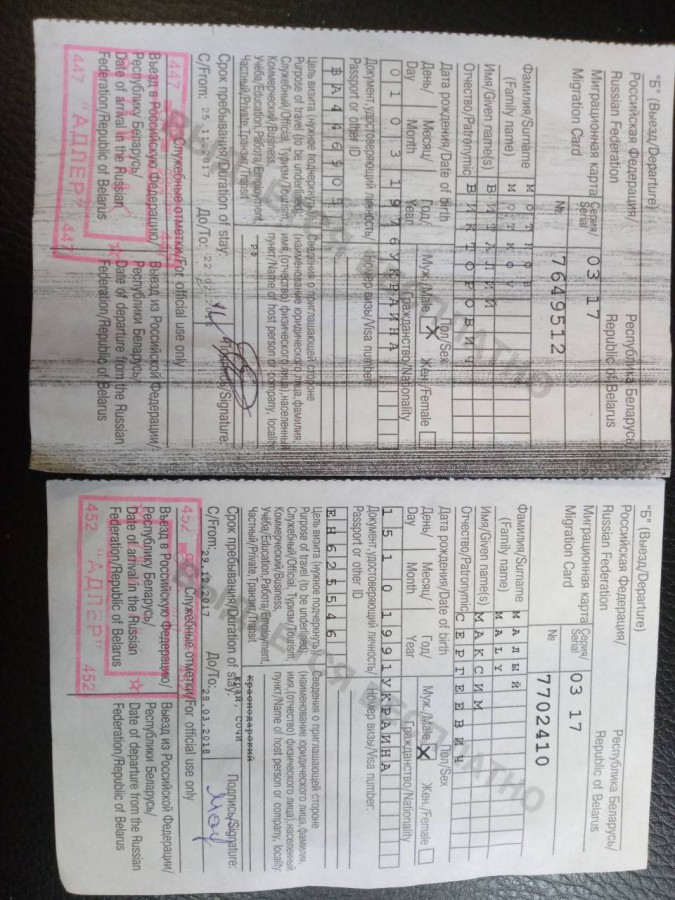 "Б" (Выезд/Departure)
Российская Федерация/ Республика Беларусь/
Russian Federation Republic of Belarus
Миграционная карта Серия/ 03 17
Migration Card Serial
№ 7649512
Фамилия/Surname
(Family name)
Имя/Given name(s) ВИТАЛИЙ
Отчество/Patronymic ВИКТОРОВИЧ
Дата рождения/Date of birth Пол/Sex
День/ Месяц/ Год/ Муж./Male X Жен./Female
Day Month Year Гражданство/Nationality
01031976УКРАИНА
Документ, удостоверяющий личность/ Номер визы/Visa number:
Passport or other ID
Цель визита (нужное подчеркнуть)/ Сведения о приглашающей стороне
Purpose of travel (to be underlined): (наименование юридического лица, фамилия,
Служебный/Official, Туризм/Tourism, имя, (отчество) физического лица), населенный
Коммерческий/Business, пункт/Name of host person or company, locality
Учёба/Education, Работа/Employment,
Частный/Private, Транзит/Transit
Срок пребывания/Duration of stay: Подпись/Signature:
С/From: До/To:
Служебные отметки/For official use only
Въезд в Российскую Федерацию/ Выезд из Российской Федерации/
Республику Беларусь/ Республики Беларусь/
Date of arrival in the Russian Date of departure from the Russian
Federation/Republic of Belarus Federation/Republic of Belarus
447 "АДЛЕР" 447
ВЫДАЕТСЯ БЕСПЛАТНО
"Б" (Выезд/Departure)
Российская Федерация/ Республика Беларусь/
Russian Federation Republic of Belarus
Миграционная карта Серия/ 03 17
Migration Card Serial
№ 7702410
Фамилия/Surname МАЛЫЙ
(Family name) MALY
Имя/Given name(s) МАКСИМ
Отчество/Patronymic СЕРГЕЕВИЧ
Дата рождения/Date of birth Пол/Sex
День/ Месяц/ Год/ Муж./Male X Жен./Female
Day Month Year Гражданство/Nationality
15101991УКРАИНА
Документ, удостоверяющий личность/ Номер визы/Visa number:
Passport or other ID
ЕН625546
Цель визита (нужное подчеркнуть)/ Сведения о приглашающей стороне
Purpose of travel (to be underlined): (наименование юридического лица, фамилия,
Служебный/Official, Туризм/Tourism, имя, (отчество) физического лица), населенный
Коммерческий/Business, пункт/Name of host person or company, locality
Учёба/Education, Работа/Employment, Краснодарский
Частный/Private, Транзит/Transit край, сочи
Срок пребывания/Duration of stay: Подпись/Signature:
С/From: 29.12.2017 До/To: 28.03.2018
Служебные отметки/For official use only
Въезд в Российскую Федерацию/ Выезд из Российской Федерации/
Республику Беларусь/ Республики Беларусь/
Date of arrival in the Russian Date of departure from the Russian
Federation/Republic of Belarus Federation/Republic of Belarus
452 "АДЛЕР" 452
ВЫДАЕТСЯ БЕСПЛАТНО